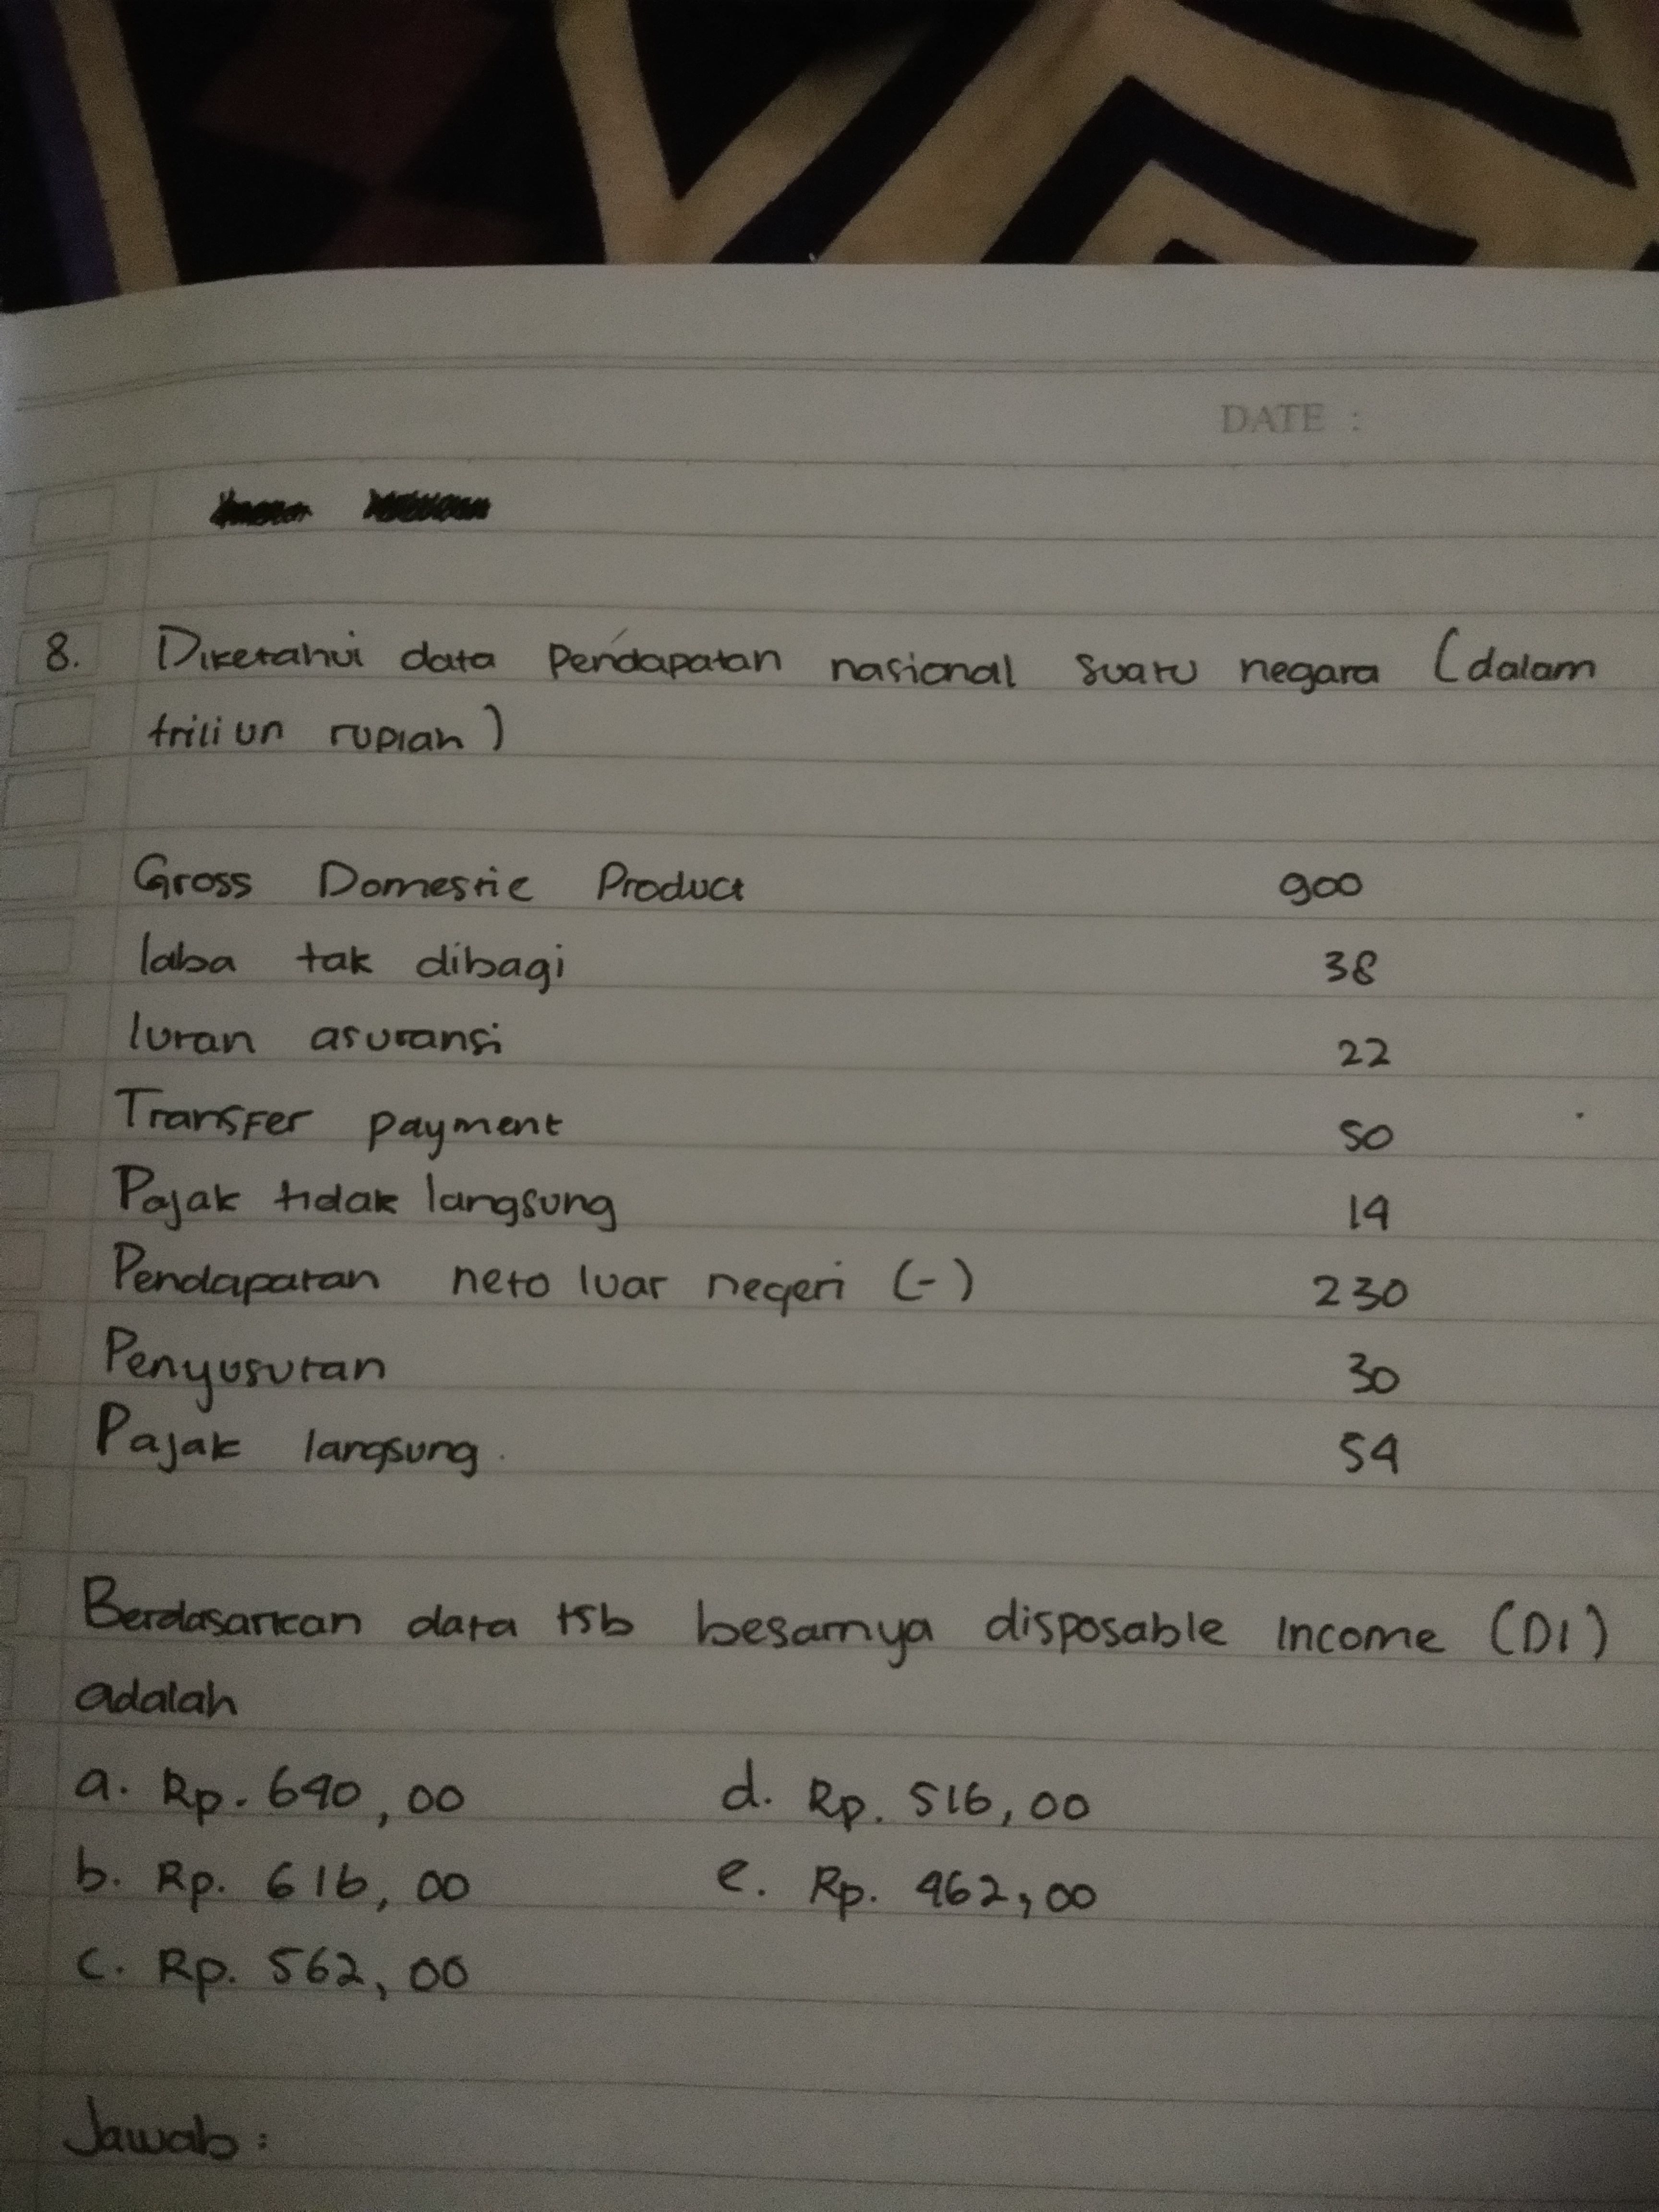 DATE :
8. Diketahui data Pendapatan nasional suatu negara (dalam
triliun rupiah)
Gross Domestic Product 900
laba tak dibagi 38
Iuran asuransi 22
Transfer payment 50
Pajak tidak langsung 14
Pendapatan neto luar negeri (-) 230
Penyusutan 30
Pajak langsung 54
Berdasarkan data tsb besarnya disposable Income (DI)
adalah
a. Rp. 640,00 d. Rp. 516,00
b. Rp. 616, 00 e. Rp. 462,00
c. Rp. 562, 00
Jawab :